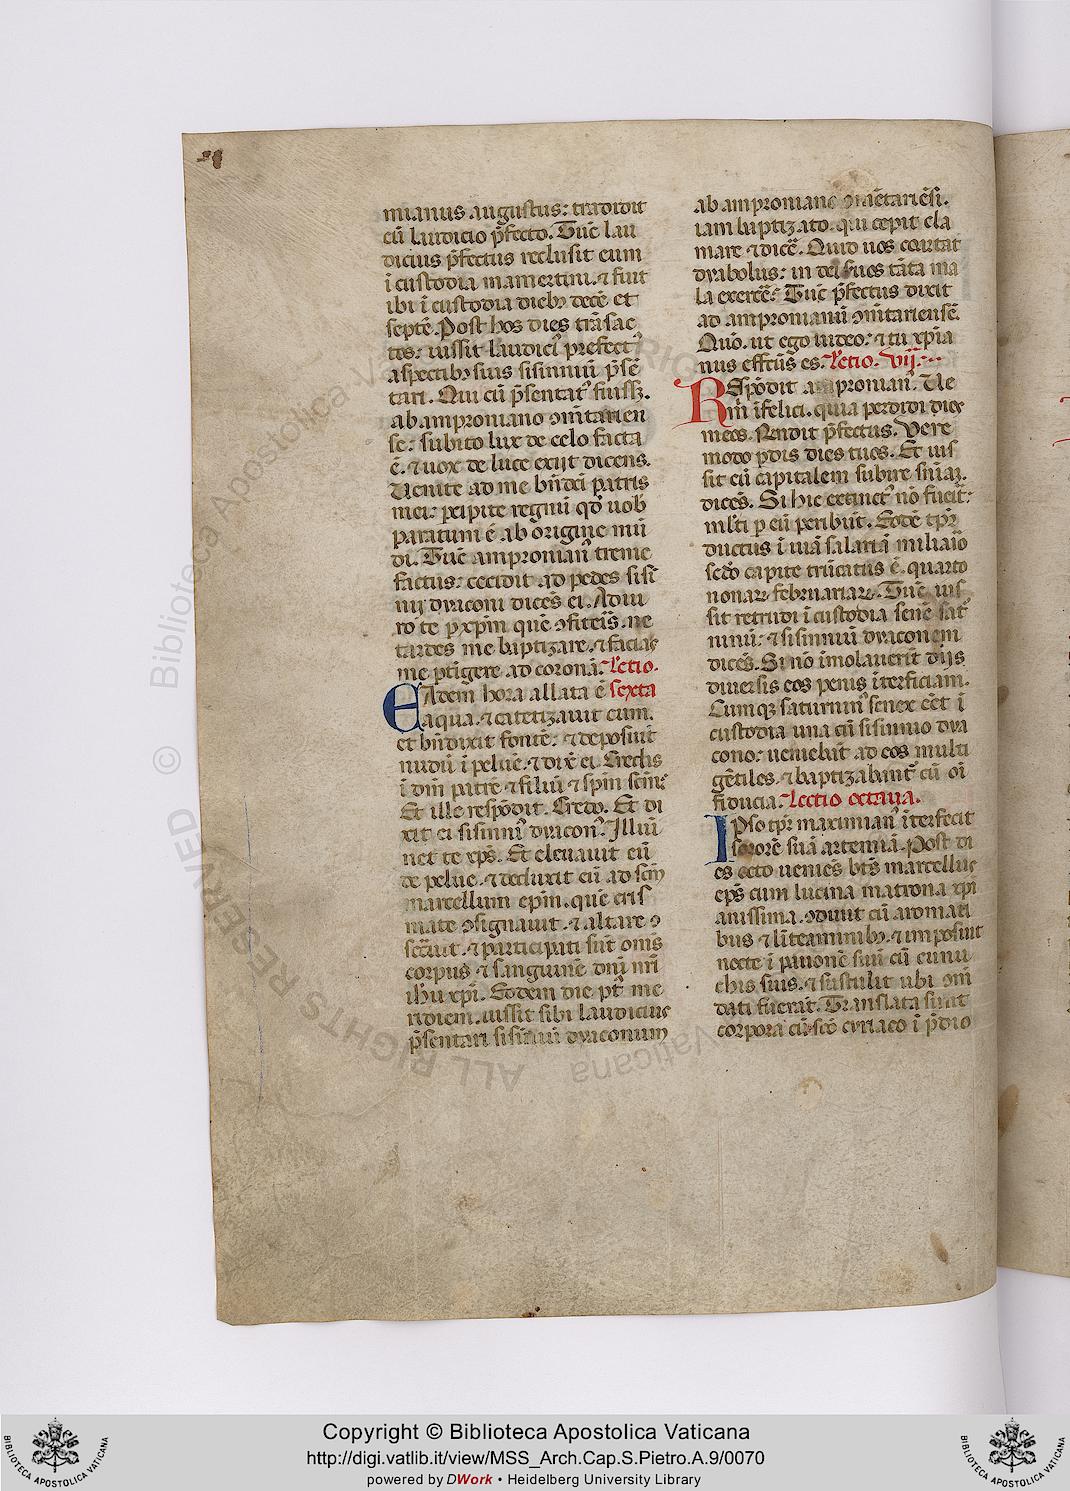 mianus augustus: tradidit
cū laudicio p̄fecto. Tūc lau
dicius p̄fectus reclusit eum
ī custodia mamertini. ⁊ fuit
ibi ī custodia dieb; decē et
septē. Post hos dies trāsac
tos: iussit laudici' prefect'
aspectib; suis sisinniū p̄sē
tari. Qui cū p̄sentat' fuiss;.
ab amproniano ↄmētarien
se: subito lux de celo facta
ē. ⁊ uox de luce exiit dicens.
Uenite ad me bn̄dc̄i patris
mei: p̄cipite regnū qd̄ uob'
paratum ē ab origine mū
di. Tūc ampronian' treme
factus: cecidit ad pedes sisī
nij draconi dicēs ei. Adiu
ro te p xp̄m quē ↄfiteris. ne
tardes me baptizare. ⁊ facias
me ptīgere ad coronā. Lectio.
EAdem hora allata ē sexta
aqua. ⁊ catetizauit eum.
et bn̄dixit fontē: ⁊ deposuit
nudū ī pelue. ⁊ dix̄ ei. Credis
ī dm̄ patrē ⁊ filiū ⁊ sp̄m scm̄:
Et ille respōdit. Credo. Et di
xit ei sisinni' dracon'. Illūi
net te xp̄s. Et eleuauit eū
de pelue. ⁊ deduxit eū ad scm̄
marcellum ep̄m. quē cris
mate ↄsignauit. ⁊ altare ↄ
sec̄uit. ⁊ participati sūt om̄s
corpus ⁊ sanguinē dn̄i nr̄i
ih̄u xp̄i. Eodem die pt̄ me
ridiem. iussit sibi laudicius
p̄sentari sisinniū draconum
ab amproniano ↄmētariēsi.
iam baptizato. qui cepit cla
mare ⁊ dicē. Quid uos coartat
dyabolus: in dei suos tāta ma
la exercē: Tūc p̄fectus dixit
ad ampronianū ↄmētariensē.
Quō. ut ego uideo: ⁊ tu xp̄ia
nus effcūs es. Lectio. Vij.
REspōdit ampronian'. Ue
m̄ īfelici. quia perdidi dies
meos. Rn̄dit p̄fectus. Vere
modo p̄dis dies tuos. Et ius
sit eū capitalem subire sn̄iaz.
dicēs. Si hic extinct' nō fuerit:
ml̄ti p eū peribūt. Eodē tp̄r
ductus ī uiā salariā miliario
scd̄o capite trūcatus ē. quarto
nonar̄ februariar̄. Tūc ius
sit retrudi ī custodia senē sat'
ninū: ⁊ sisinniū draconem
dicēs. Si nō īmolauerīt dijs
diuersis eos penis īterficiam.
Cumqz saturnin' senex cēt ī
custodia una cū sisinnio dra
cono: ueniebāt ad eos multi
gētiles. ⁊ baptizabant' cū oī
fiducia. Lectio octaua.
IPso tp̄r maximian' īterfecit
sororē suā artemiā. Post di
es octo ueniēs bt̄s marcellus
ep̄s cum lucina matrona xp̄i
anissima. ↄdiuit cū aromati
bus ⁊ līteaminib; ⁊ imposuit
nocte ī pauonē suū cū eunu
chis suis. ⁊ sustulit ubi om̄
dati fuerāt. Translata sunt
corpora cū scō cyriaco ī p̄dio
Copyright © Biblioteca Apostolica Vaticana
http://digi.vatlib.it/view/MSS_Arch.Cap.S.Pietro.A.9/0070
powered by DWork • Heidelberg University Library
BIBLIOTECA APOSTOLICA VATICANA
BIBLIOTECA APOSTOLICA VATICANA
© Biblioteca Apostolica Vaticana
ALL RIGHTS RESERVED